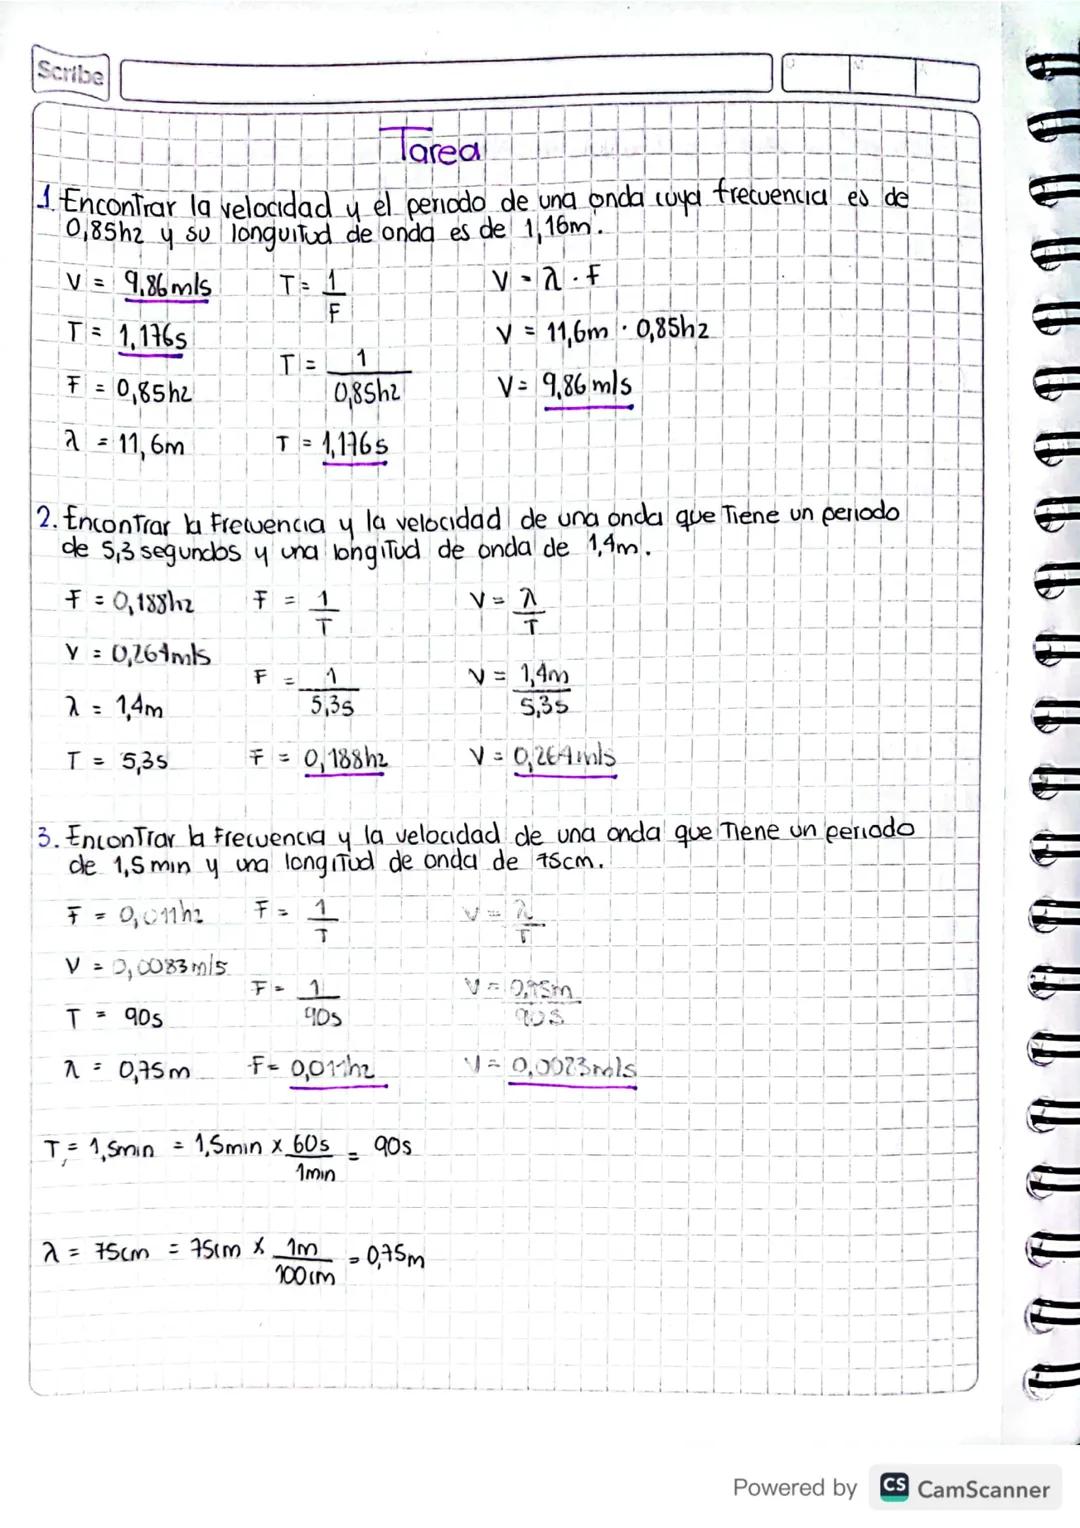 Scribe
Tarea
1. Encontrar la velocidad y el periodo de una onda cuya frecuencia es de
0,85hz y su longuitud de onda es de 1,16m.
V = 9,86m/s T = 1/F V = λ · F
T = 1,176s T = 1/0,85hz V = 11,6m · 0,85hz
F = 0,85hz V = 9,86 m/s
λ = 11,6m T = 1,176s
2. Encontrar la frecuencia y la velocidad de una onda que Tiene un periodo
de 5,3 segundos y una longitud de onda de 1,4m.
F = 0,188hz F = 1/T V = λ/T
V = 0,264m/s F = 1/5,3s V = 1,4m/5,3s
λ = 1,4m
T = 5,3s F = 0,188hz V = 0,264m/s
3. Encontrar la frecuencia y la velocidad de una onda que Tiene un periodo
de 1,5 min y una longitud de onda de 75cm.
F = 0,011hz F = 1/T V = λ/T
V = 0,0083m/s F = 1/90s V = 0,75m/90s
T = 90s
λ = 0,75m F = 0,011hz V = 0,0083m/s
T = 1,5min = 1,5min x 60s/1min = 90s
λ = 75cm = 75cm x 1m/100cm = 0,75m
Powered by CS CamScanner